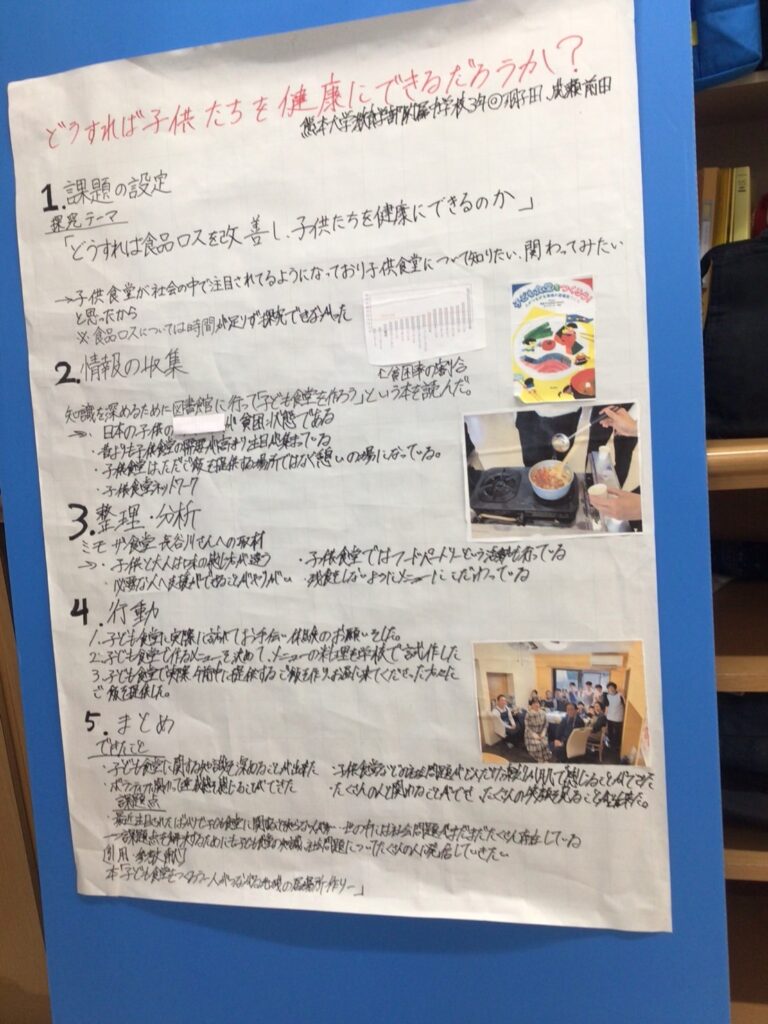 どうすれば子供たちを健康にできるだろうか？
熊本大学教育学部附属中学校3年 前田
1.課題の設定
探究テーマ
「どうすれば食品ロスを改善し、子供たちを健康にできるのか」
→子供食堂が社会の中で注目されてるようになっており子供食堂について知りたい、関わってみたい
と思ったから
※食品ロスについては時間が足りず探究できなかった
子ども食堂をつくろう！
貧困率の割合
2.情報の収集
知識を深めるために図書館に行って「子ども食堂を作ろう」という本を読んだ。
→・日本の子供の が貧困状態である
・昔よりも子供食堂の需要が高まり注目が集まっている
・子供食堂は、ただご飯を提供する場所ではなく憩いの場になっている。
・子供食堂ネットワーク
3.整理・分析
食堂 長谷川さんへの取材
→・子供と大人は味の感じ方が違う ・子供食堂ではフードパートリーという活動も行っている
・必要な人へ支援ができることがやりがい ・残食をしないようにメニューにこだわっている
4.行動
1.子ども食堂に実際に訪れてお手伝い・体験のお願いをした。
2.子ども食堂で作るメニューを決めて、メニューの料理を学校で試作した
3.子ども食堂で実際 提供するご飯を作り、お店に来てくださった方々に
ご飯を提供した。
5.まとめ
できたこと
・子ども食堂に関する知識を深めることが出来た ・子供食堂などの社会問題 感じることができた
・ボランティアに関わって達成感を感じることができた ・たくさんの人と関わることができ、たくさんの笑顔を見ることが出来た。
課題点
・最近注目されてばかりで子ども食堂に関することを知らない人が多い ・世の中には社会問題がまだまだたくさん存在している
→課題点を解決するためにも子ども食堂の知識、社会問題についてたくさんの人に発信していきたい
引用・参考文献
本「子ども食堂をつくろう！ー人がつながる地域の居場所作りー」